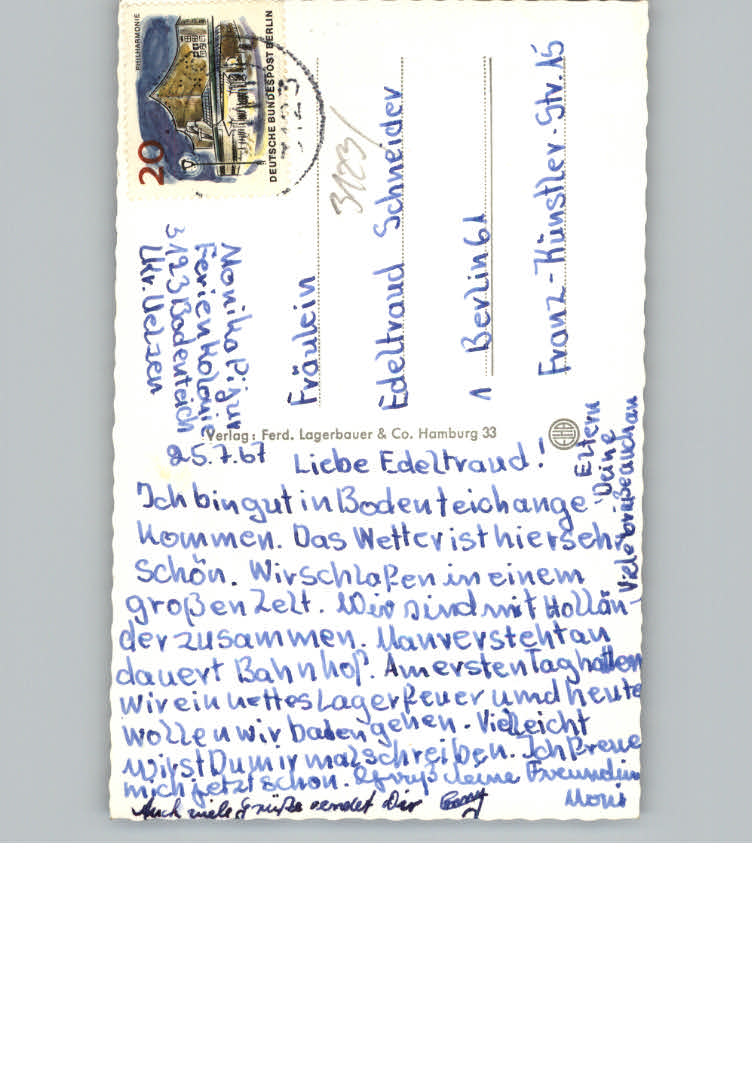 PHILHARMONIE
20
DEUTSCHE BUNDESPOST BERLIN
3123/
Monika Pizur
Ferienkolonie
3123 Bodenteich
Kr. Uelzen
Fräulein
Edeltraud Schneider
1 Berlin 61
Franz-Künstler-Str. 15
Verlag: Ferd. Lagerbauer & Co. Hamburg 33
25.7.67 Liebe Edeltraud!
Ich bin gut in Bodenteich ange-
kommen. Das Wetter ist hier sehr
schön. Wir schlafen in einem
großen Zelt. Wir sind mit Hollän-
der zusammen. Man versteht an
dauert Bahnhof. Am ersten Tag hatten
wir ein nettes Lagerfeuer und heute
wollen wir baden gehen. Vielleicht
wirst Du mir mal schreiben. Ich freue
mich jetzt schon. Es grüß deine Freundin
Moni
Auch viele Grüße sendet Dir
Viele Grüße auch an
Deine
Eltern